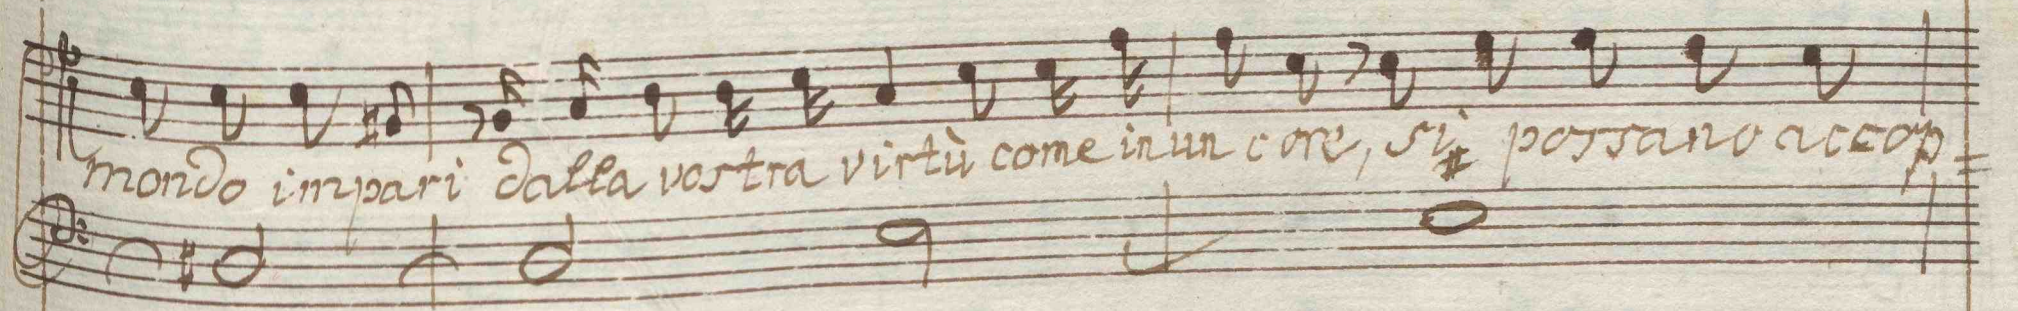 mondo impari dalla vostra virtù come in un core, si possano accop=